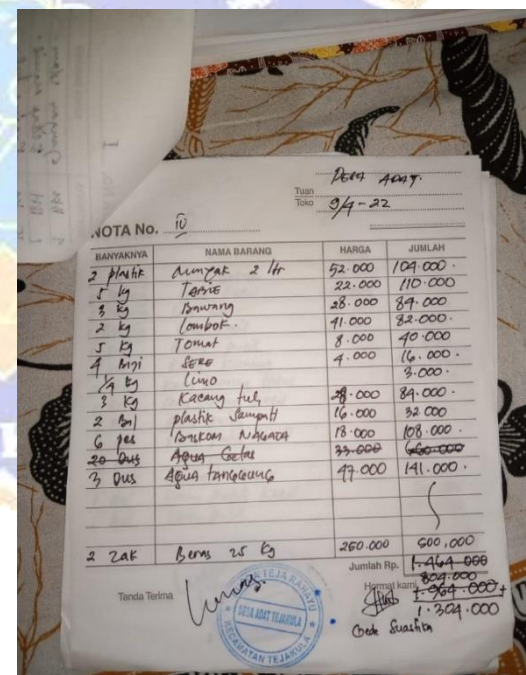 DESA ADAT.
Tuan
Toko 9/4-22
NOTA No. IV
BANYAKNYA NAMA BARANG HARGA JUMLAH
2 plastik Minyak 2 ltr 52.000 104.000.
5 kg TABIE 22.000 110.000
3 kg Bawang 28.000 84.000.
2 kg Lombok. 41.000 82.000.
5 kg Tomat 8.000 40.000
4 Biji SERE 4.000 16.000.
1/4 kg Limo 3.000.
3 kg Kacang 28.000 84.000.
2 Bal plastik Sampah 16.000 32.000
6 pcs BASKOM NAGATA 18.000 108.000.
20 Dus Aqua Gelas 33.000 660.000
3 Dus AQUA TANGGUNG 47.000 141.000.
2 Zak Beras 25 kg 250.000 500,000
Jumlah Rp. 1.464.000
804.000
Tanda Terima Hormat kami
1.304.000
Gede Suastika
TEJA RAHAYU
DESA ADAT TEJAKULA
KECAMATAN TEJAKULA